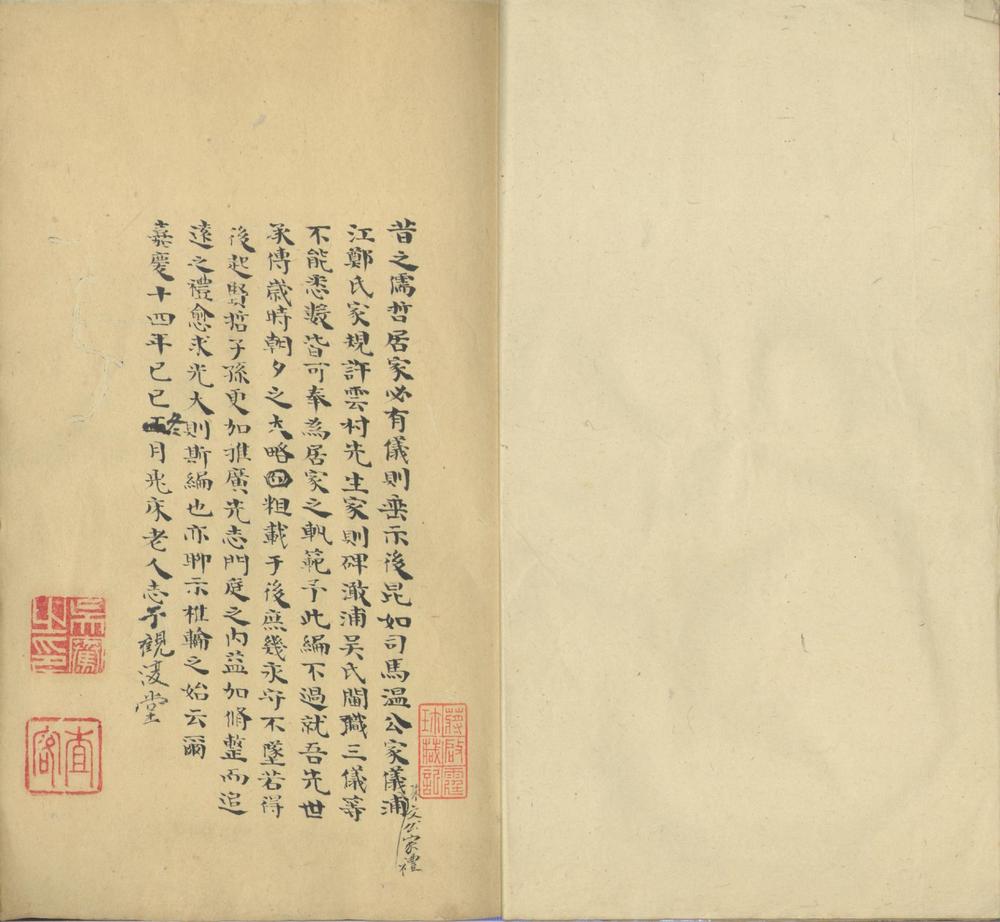 昔之儒哲居家必有儀則垂示後昆如司馬温公家儀浦
朱文公家禮
江鄭氏家規許雲村先生家則碑澉浦吳氏閫職三儀等
不能悉數皆可奉為居家之軌範予此編不過就吾先世
承傳歲時朝夕之大略粗載于後庶幾永守不墜若得
後起賢哲子孫更加推廣先志門庭之内益加修整而追
遠之禮愈求光大則斯編也亦聊示椎輪之始云爾
嘉慶十四年己巳冬月兎床老人志于觀濠堂
蔣啟霆
珎藏記
吳騫
之印